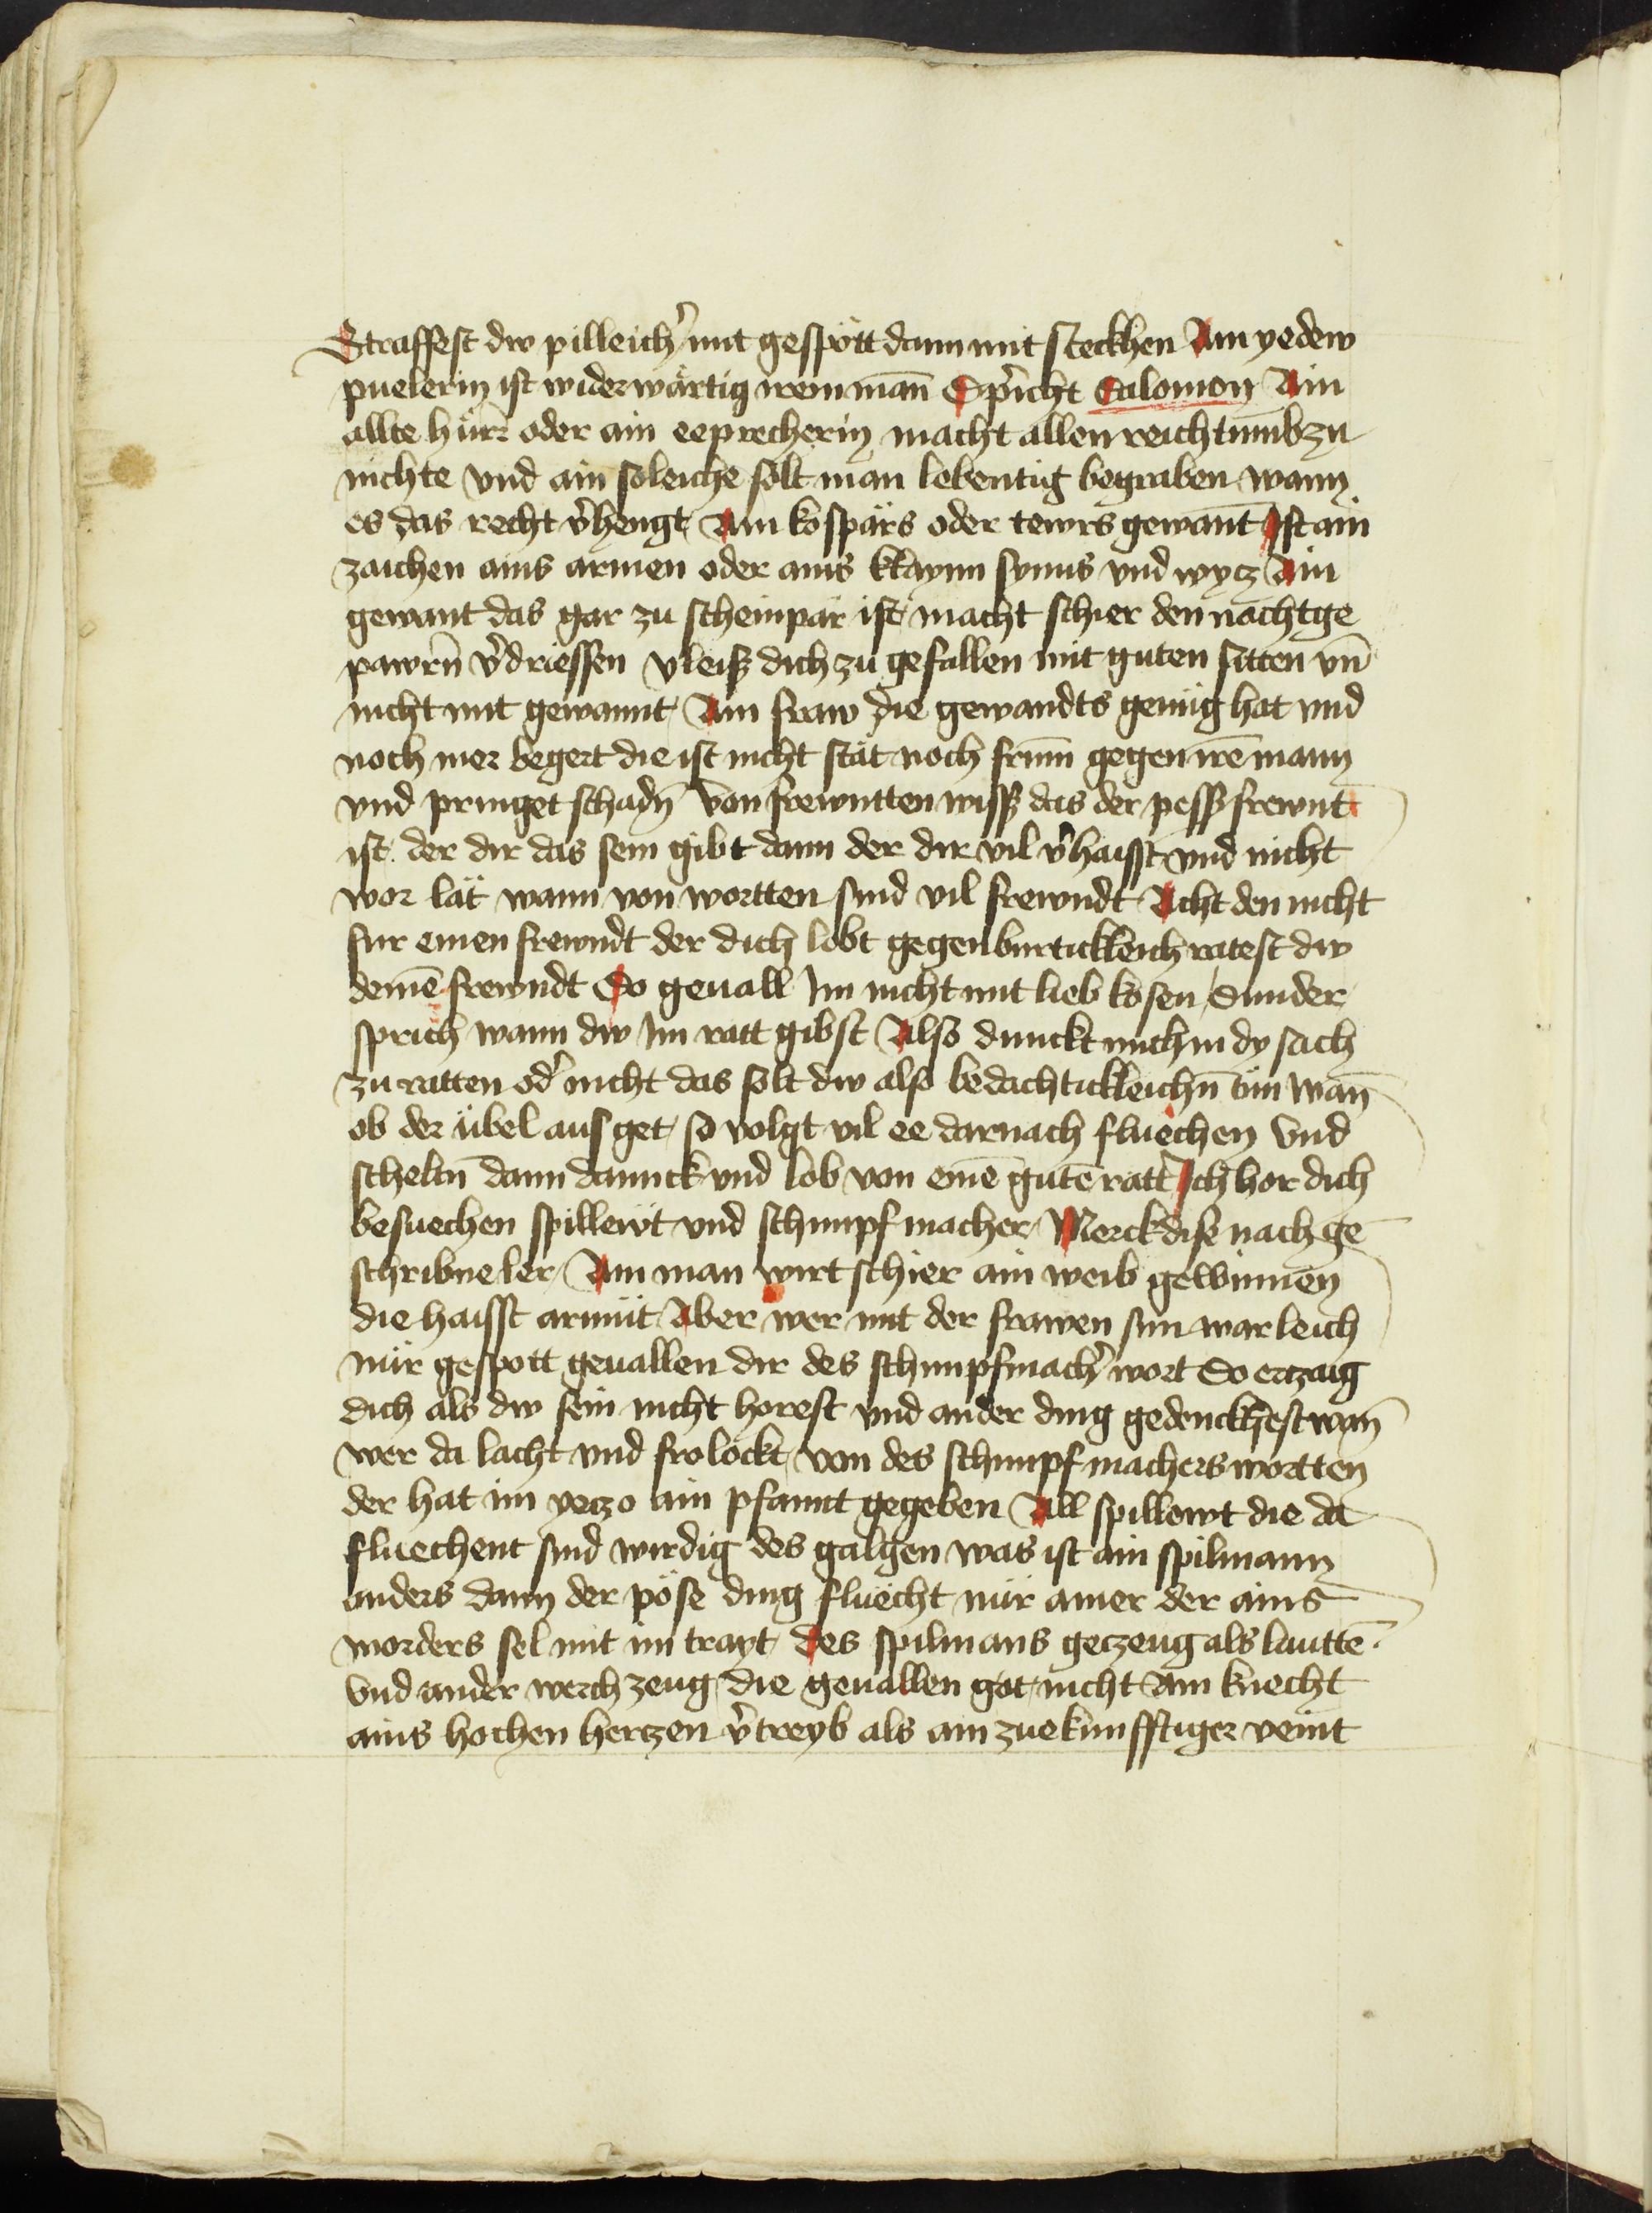 Straffest dw pilleich͛ mit gespött dann mit steckhen Ain yedew
puelerin ist widerwärtig irem mañ Sp͛icht Salomon Ain
allte hürr oder ain eeprecherin macht allen reichtumb zu
nichte vnd ain soleiche solt man lebentig begraben wann
es das recht v͛hengt Ain kospärs oder tewrs gewant Ist ain
zaichen ains armen oder ains klaynn synns vnd wycz Ain
gewant das gar zu scheinpär ist macht schier den nachtge
pawrñ v͛driessen vleiss dich zu gefallen mit guten sitten vñ
nicht mit gewannt Ain fraw die gewandts genüg hat vnd
noch mer begert die ist nicht stät noch frūm gegen irē mann
vnd pringet schadñ von frewntten wiss das der pesst frewnt
ist der dir das sein gibt dann der dir vil v͛haisst vnd nicht
wor lät wann von wortten sind vil frewndt Acht den nicht
fur einen frewndt der dich lobt gegenburtickleich ratest dw
deinē frewndt So geuall Im nicht mit lieb kosen Sunder
sprich wann dw Im ratt gibst Also dunckt mich in dy sach
zu ratten od͛ nicht das solt dw also bedachtickleichñ tün wañ
ob der übel aus get so volgt vil ee darnach fluechen vnd
scheltñ dann dannck vnd lob von einē gutē ratt Ich hor dich
besuechen spillewt vnd schimpf macher Merck dise nach ge
schribne ler Ain man wirt schier ain weib gewinnen
die haisst armüt Aber wer mit der frawen sun warleich
nür gespott geuallen dir des schimpfmach͛ wort So erczaig
dich als dw sein nicht horest vnd ander ding gedenckhest wañ
wer da lacht vnd frolockt von des schimpf machers wortten
der hat im yeczo ain pfannt gegeben All spillewt die da
fluechent sind wirdig des galgen was ist ain spilmann
anders dann der pöse ding fluecht nür ainer der ains
morders sel mit im trayt Des spilmans geczeug als lauttē
vnd ander werchzeug die geuallen got nicht Ain knecht
ains hochen herczen v͛treyb als ain zuekunfftiger veint